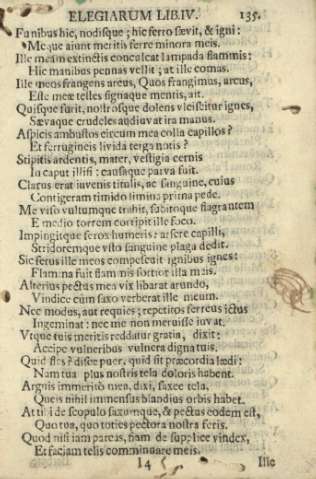 ELEGIARUM LIB.IV. 135.
Funibus hic, nodisque; hic ferro sævit, & igni:
Meque aiunt meritis ferre minora meis.
Ille meam extinctis conculcat lampada flammis:
Hic manibus pennas vellit; at ille comas.
Ille meos frangens arcus, Quos frangimus, arcus,
Este meæ testes signaque mentis, ait.
Quisque furit, nostrosque dolens vlciscitur ignes,
Sævaque crudeles audiuvat ira manus.
Aspicis ambustos circum mea colla capillos?
Et ferrugineis livida terga notis?
Stipitis ardentis, mater, vestigia cernis
In caput illisi: causaque parva fuit.
Clarus erat iuvenis titulis, ac sanguine, cuius
Contigeram timido limina prima pede.
Me viso vultumque trahit, subitoque flagrantem
E medio torrem corripit ille foco.
Impingitque ferox humeris: arsere capilli,
Stridoremque visto sanguine plaga dedit.
Sic ferus ille meos compescuit ignibus ignes:
Flamma fuit flammis fortior illa meis.
Alterius pectus mea vix libarat arundo,
Vindice cùm saxo verberat ille meum.
Nec modus, aut requies; repetitos ferreus ictus
Ingeminat: nec me non meruisse iuvat.
Vtque tuis meritis reddatur gratia, dixit:
Accipe vulneribus vulnera digna tuis.
Quid fles? disce puer. quid sit præcordia lædi:
Nam tua plus nostris tela doloris habent.
Arguis immeritò mea, dixi, saxee tela.
Queis nihil immensus blandius orbis habet.
At tibi de scopulo saxumque, & pectus eodem est,
Quo tua, quo toties pectora nostra feris.
Quod nisi iam pareas, fiam de supplice vindex,
Et faciam telis comminuare meis.
I 4 Ille